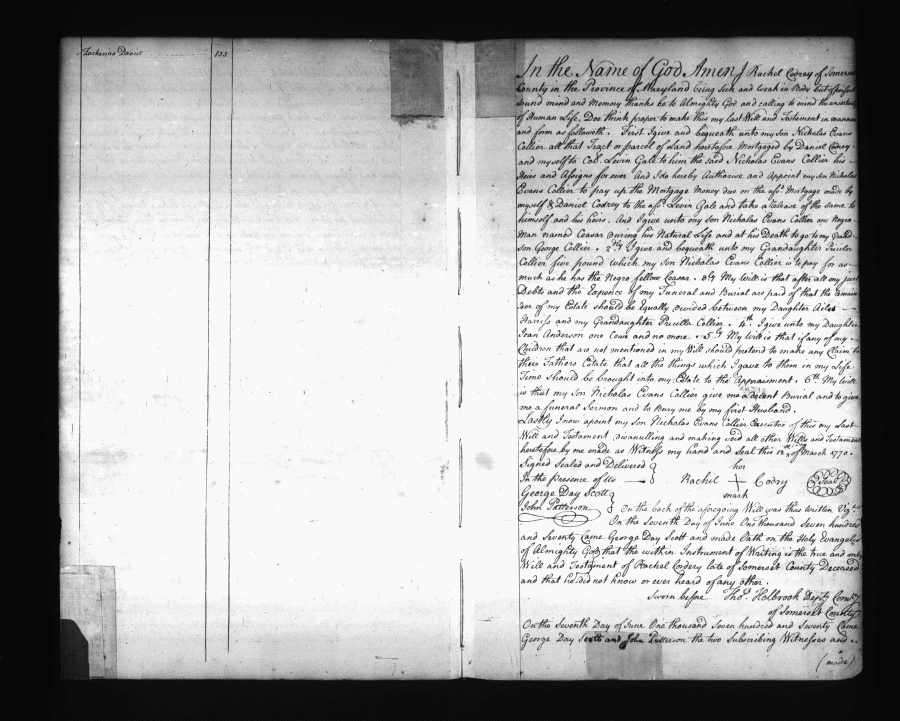 Zacherias Daniel 183
In the Name of God Amen I Rachel Codrey of Somerset
County in the Province of Maryland being Sick and weak in Body but of perfect
Sound mind and Memory thanks be to Almighty God and calling to mind the
of Human Life. Doe think proper to make this my last Will and Testament in manner
and form as followeth. First I give and bequeath unto my Son Nicholas Evans
Collier all that Tract or parcel of Land heretofore Mortgaged by Daniel Codrey
and myself to Col. Levin Gale to him the said Nicholas Evans Collier his
Heirs and Assigns for ever And I do hereby Authorise and Appoint my Son Nicholas
Evans Collier to pay up the Mortgage Money due on the afsd. Mortgage made by
myself & Daniel Codrey to the afsd. Levin Gale and take a Release of the same to
himself and his heirs. And I give unto my Son Nicholas Evans Collier one Negro
Man named Ceasar During his Natural Life and at his Death to go to my Grand
Son George Collier. 2ly I give and bequeath unto my Grandaughter
Collier five pound which my Son Nicholas Evans Collier is to pay for as
much as he has the Negro fellow Ceasar. 3ly My Will is that after all my just
Debts and the Expence of my Funeral and Burial are paid of that the remain
der of my Estate should be Equally devided between my Daughter
Harriss and my Grandaughter Privella Collier. 4th. I give unto my Daughter
Jean Anderson one Cowe and no more. 5ly My Will is that if any of my
Children that are not mentioned in my Will should pretend to make any Claim to
their Fathers Estate that all the things which I gave to them in my Life
Time should be brought into my Estate to the Appraisment. 6th My Will
is that my Son Nicholas Evans Collier give me a decent Burial and to give
me a funeral Sermon and to Bury me by my first Husband.
Lastly I now apoint my Son Nicholas Evans Collier Executor of this my Last
Will and Testament disanulling and making void all other Wills and Testament
heretofore by me made as Witness my hand and Seal this 13th of March 1770.
Signed Sealed and Delivered her
In the Presence of Us Rachil + Codry Seal
George Day Scott mark
John Patterson On the back of the aforegoing Will was thus written Vizt.
On the Seventh Day of June One thousand Seven hundred
and Seventy Came George Day Scott and made Oath on the Holy Evangels
of Almighty God that the within Instrument of Writing is the true and only
Will and Testament of Rachel Cordery late of Somerset County Deceased
and that he did not know or ever heard of any other.
Sworn before Thos. Holbrook Depty Comsy
of Somerset County
On the Seventh Day of June One thousand Seven hundred and Seventy Came
George Day Scott and John Patterson the two Subscribing Witnesses and
(made)